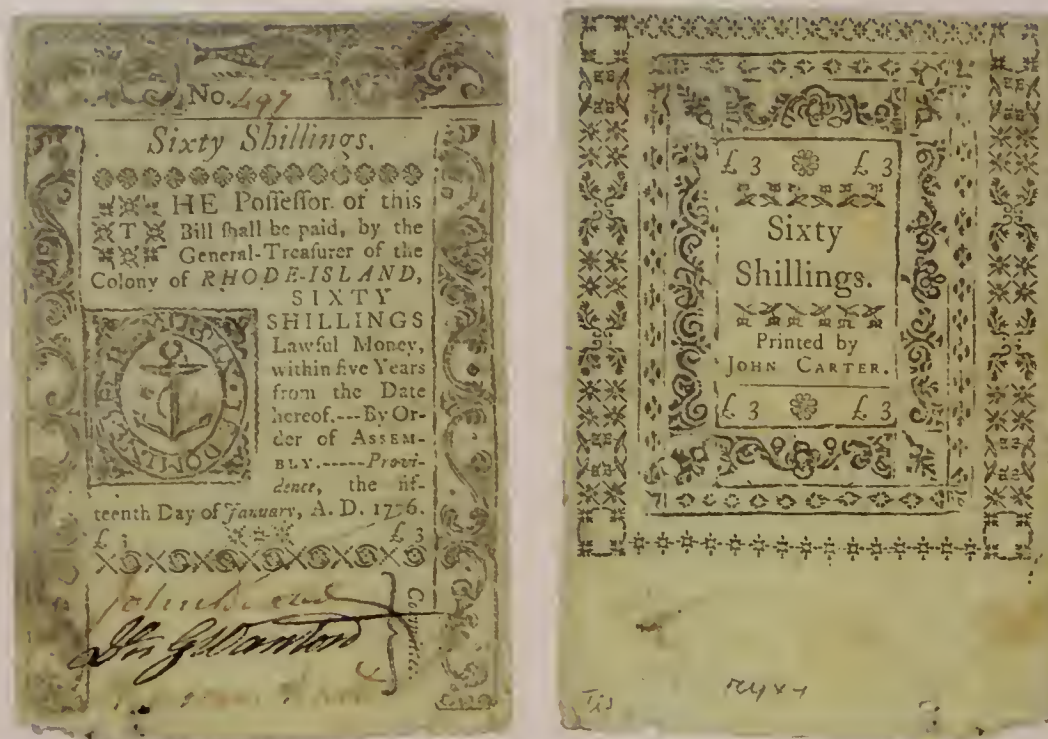 No. 497
Sixty Shillings.
THE Poſſeſſor of this
Bill ſhall be paid, by the
General-Treaſurer of the
Colony of RHODE-ISLAND,
SIXTY
SHILLINGS
Lawful Money,
within five Years
from the Date
hereof.---By Or-
der of ASSEM-
BLY.-----Provi-
dence, the fif-
teenth Day of January, A. D. 1776.
£ 3 £ 3
John
Jos G Wanton
Committee.
£ 3 £ 3
Sixty
Shillings.
Printed by
JOHN CARTER.
£ 3 £ 3